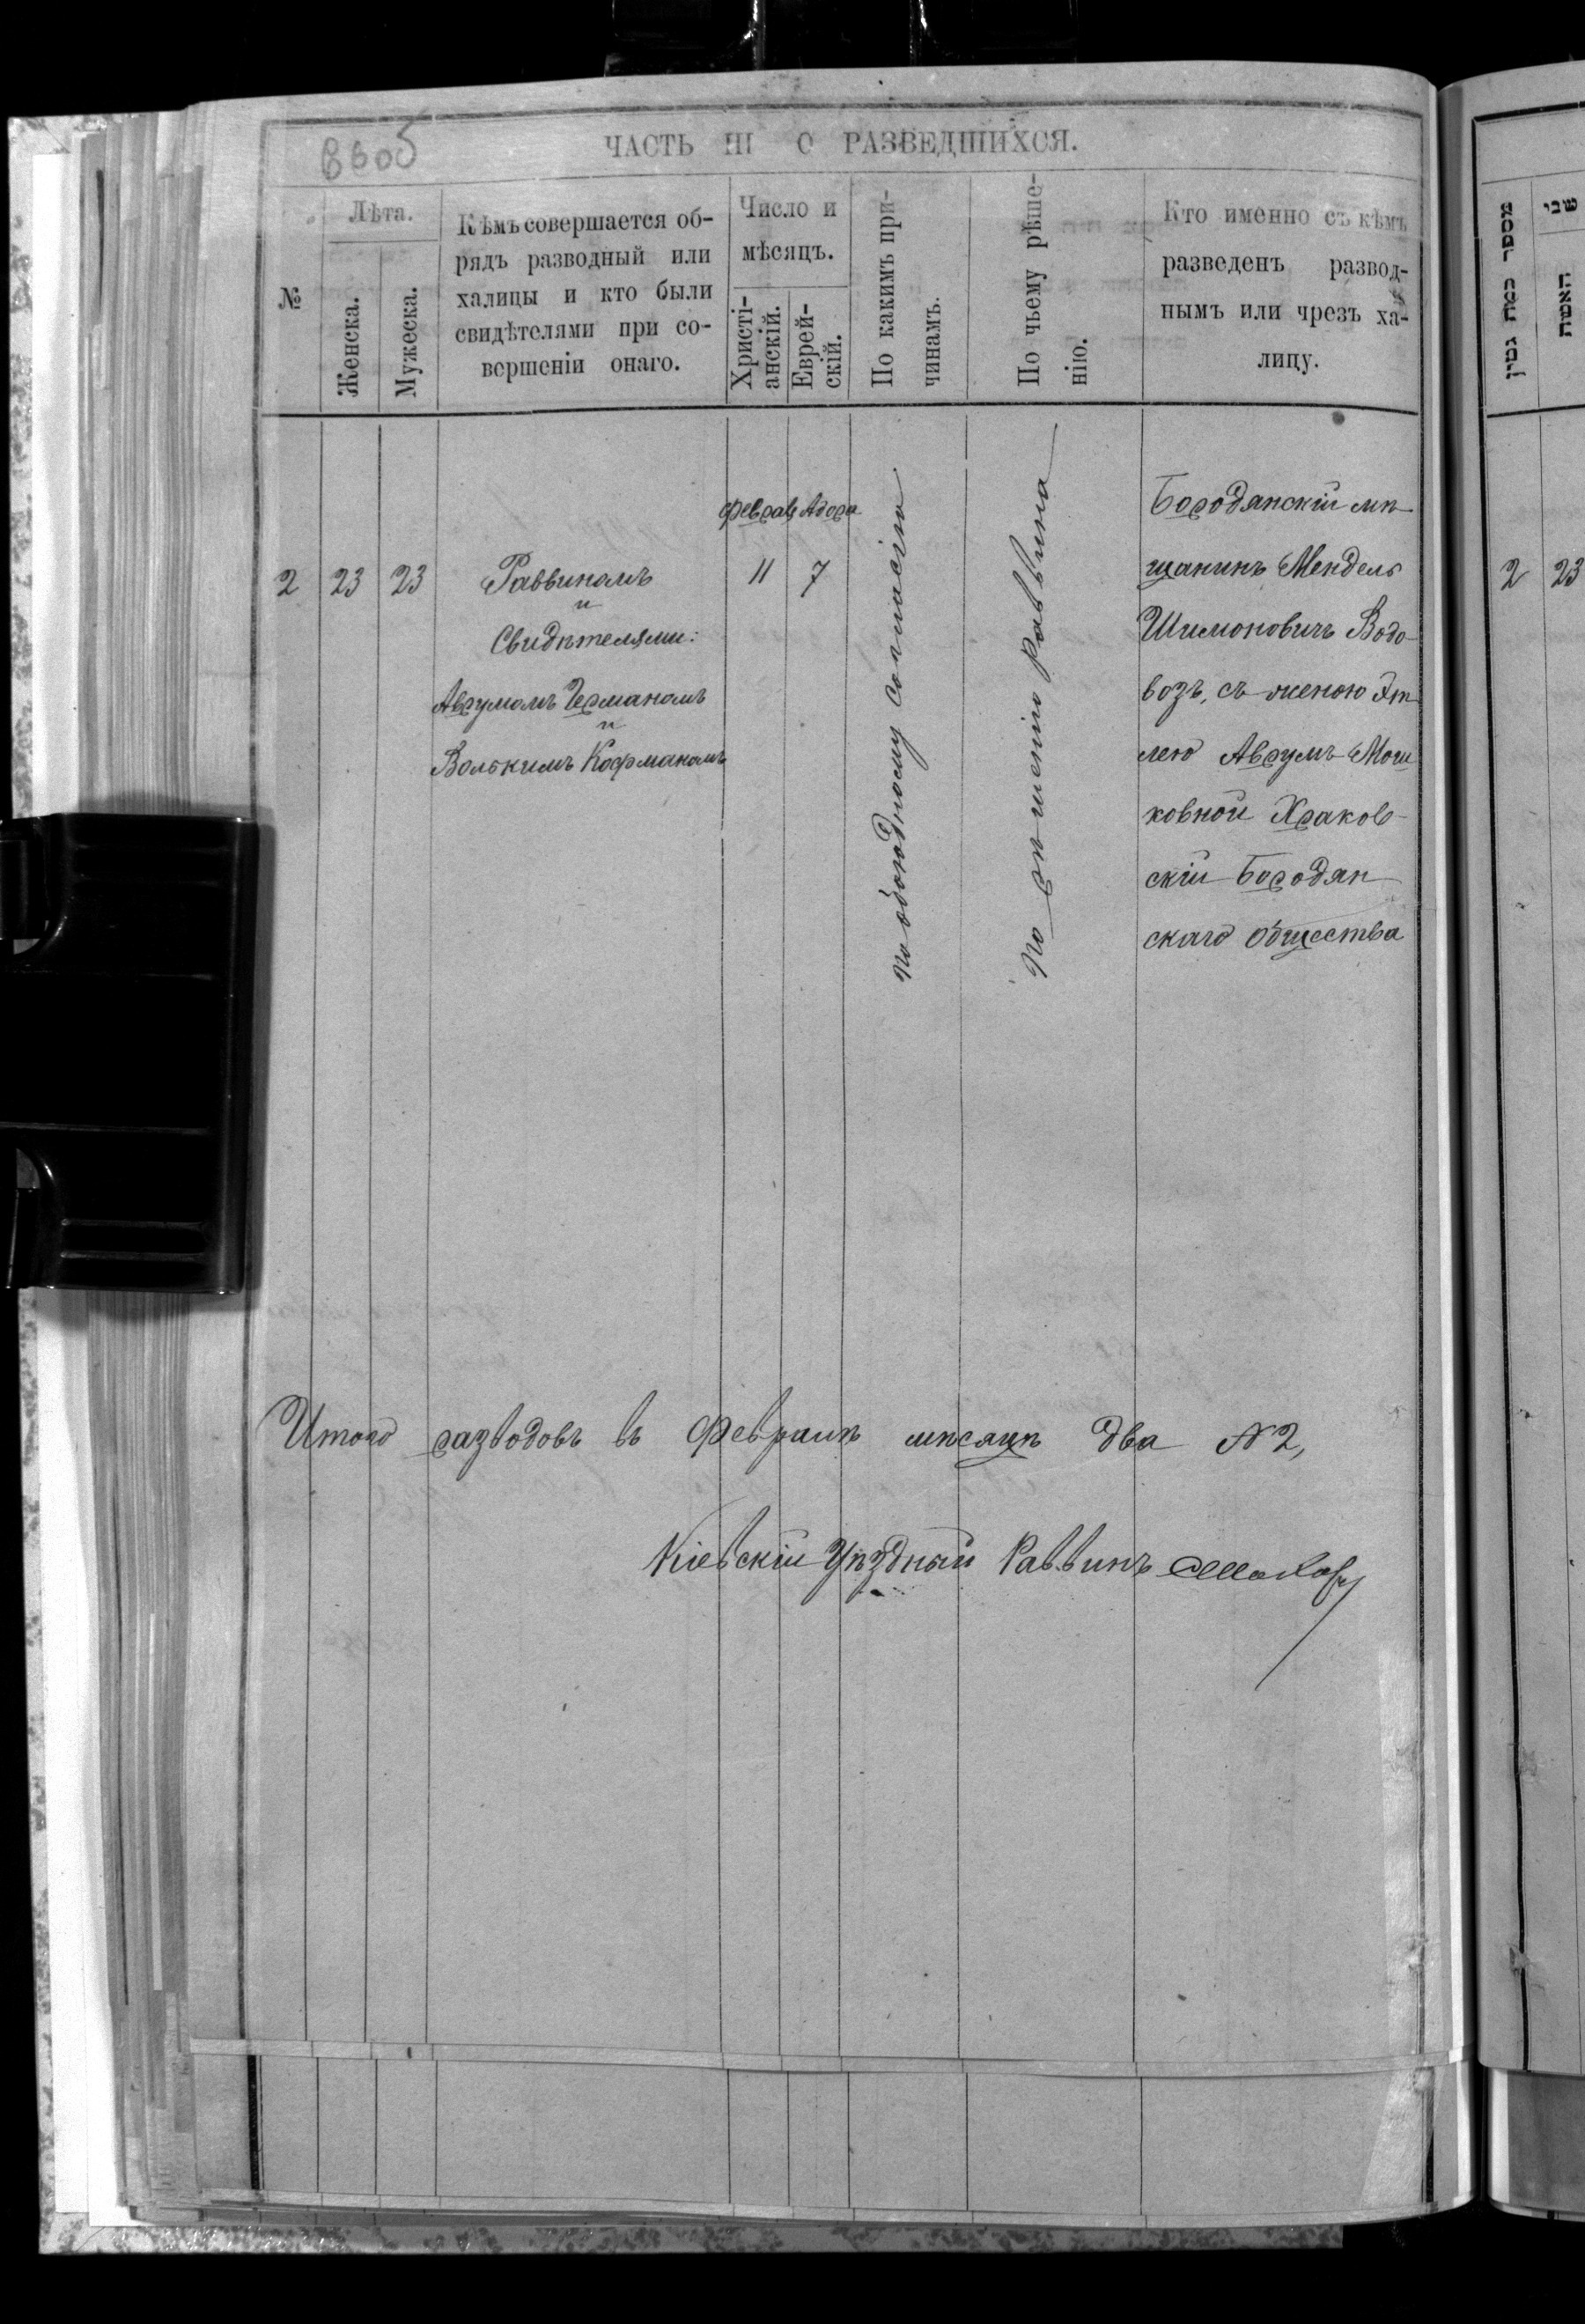 ЧАСТЬ III О РАЗВЕДШИХСЯ.
№
Лѣта.
Женска.
Мужеска.
Кѣмъ совершается об-
рядъ разводный или
халицы и кто были
свидѣтелями при со-
вершеніи онаго.
Число и
мѣсяцъ.
Христі-
анскій.
Еврей-
скій.
По какимъ при-
чинамъ.
По чьему рѣше-
нію.
Кто именно съ кѣмъ
разведенъ развод-
нымъ или чрезъ ха-
лицу.
2
23
23
Раввиномъ
и
Свидѣтелями:
Аврумомъ Германомъ
и
Волькимъ Кофманомъ
Феврал
11
Адора
7
По обоюдному согласію
По рѣшенію Раввина
Бородянскій мѣ-
щанинъ Мендель
Шимоновичъ Водо-
возъ, съ женою Эт
лею Аврумъ-Мош
ковной Храков-
скій Бородян
скаго Общества
Итого разводовъ въ Февралѣ мѣсяцѣ два № 2,
Кіевскій Уѣздный Раввинъ
מספר כמה גטין
שני
האשה
2
23